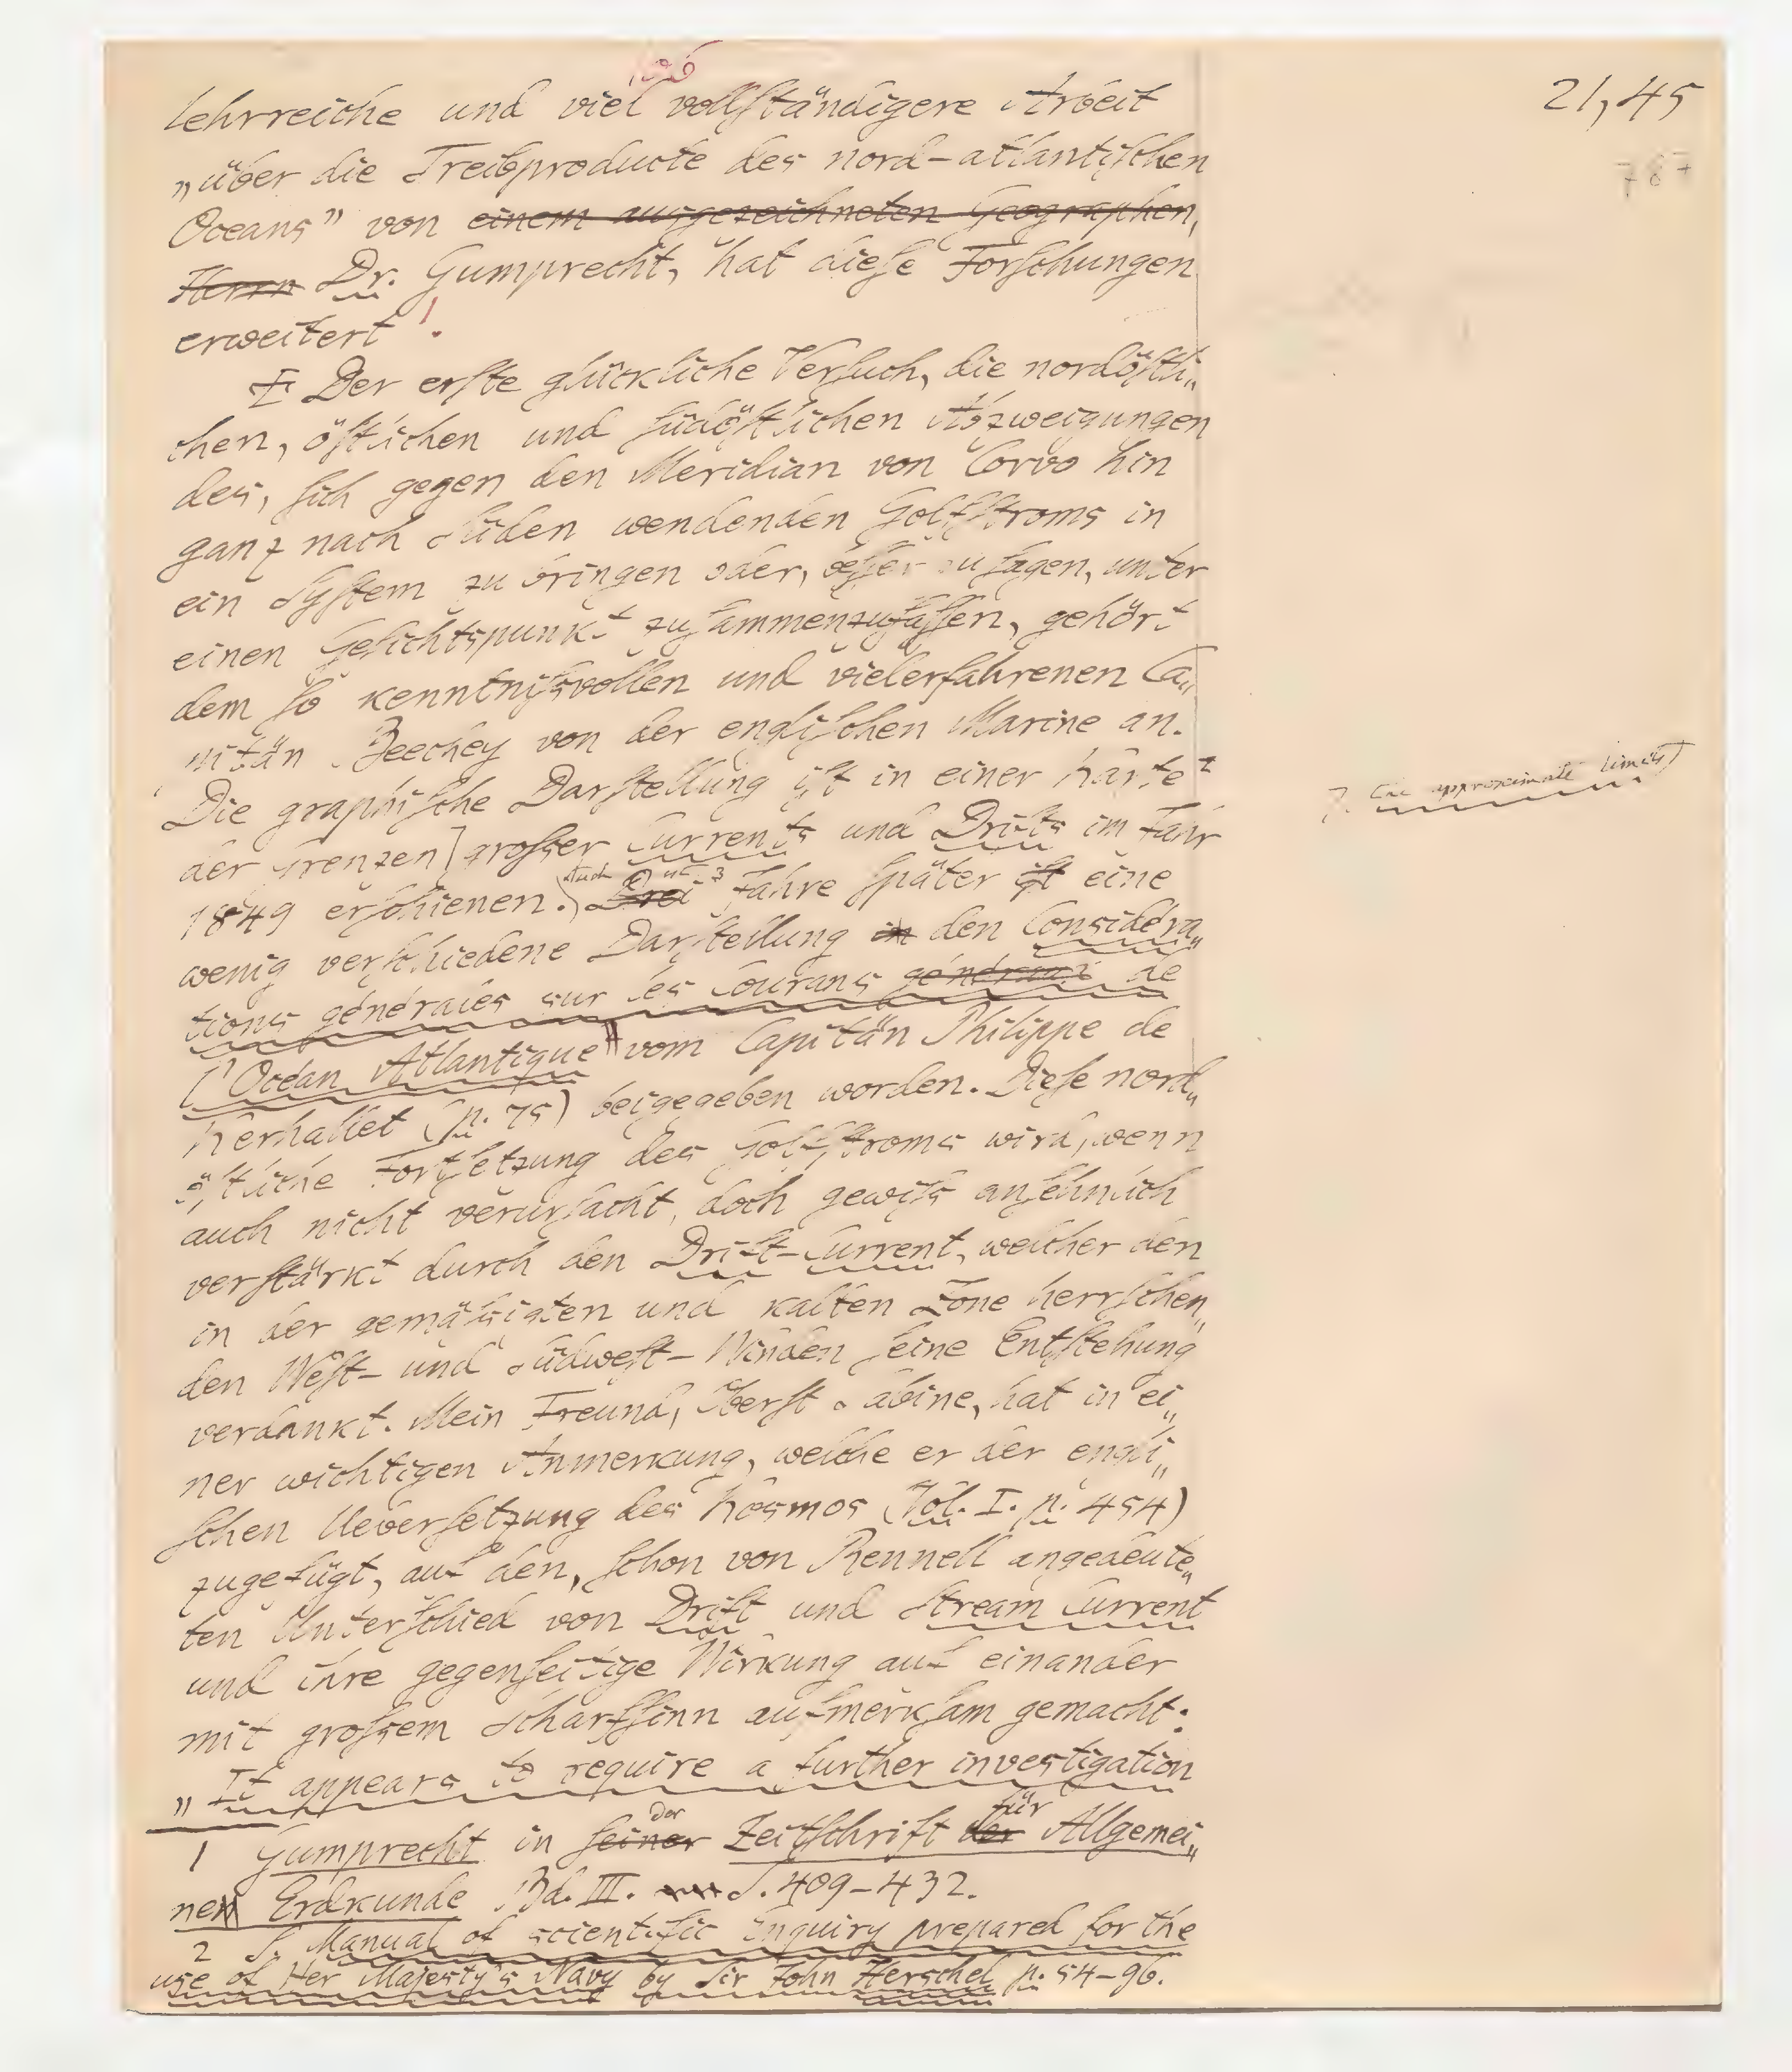 106
21,45
787
lehrreiche und viel vollständigere Arbeit
„über die Treibproducte des nord-atlantischen
Oceans” von einem ausgezeichneten Geographen,
Herrn Dr. Gumprecht, hat diese Forschungen
erweitert 1.
Der erste glückliche Versuch, die nordöstli„
chen, östlichen und südöstlichen Abzweigungen
des, sich gegen den Meridian von Corvo hin
ganz nach Süden wendenden Golfstroms in
ein System zu bringen oder, besser zu sagen, unter
einen Gesichtspunkt zusammenzufassen, gehört
dem so kenntnißvollen und vielerfahrenen Ca„
pitän Beechey von der englischen Marine an.
Die graphische Darstellung ist in einer Karte 2
der Grenzen] großer Currents und Drifts im Jahr
(the approximate limits)
1849 erschienen. Auch ist Drei 3 Jahre später ist eine
wenig verschiedene Darstellung in den Considéra„
tions générales sur les Courans généraux de
l'Océan Atlantique” vom Capitän Philippe de
Kerhallet (p. 75) beigegeben worden. Diese nord„
östliche Fortsetzung des Golfstroms wird, wenn
auch nicht verursacht, doch gewiß ansehnlich
verstärkt durch den Drift-Current, welcher den
in der gemäßigten und kalten Zone herrschen„
den West- und Südwest-Winden seine Entstehung
verdankt. Mein Freund, Oberst Sabine, hat in ei„
ner wichtigen Anmerkung, welche er der engli„
schen Uebersetzung des Kosmos (Vol. I. p. 454)
zugefügt, auf den, schon von Rennell angedeute„
ten Unterschied von Drift und Stream Current
und ihre gegenseitige Wirkung auf einander
mit großem Scharfsinn aufmerksam gemacht:
„It appears to require a further investigation
1 Gumprecht in seiner der Zeitschrift der für Allgemei„
nen Erdkunde Bd. III. S. 409-432.
2 S. Manual of scientific Inquiry prepared for the
use of Her Majesty's Navy by Sir John Herschel p. 54-96.